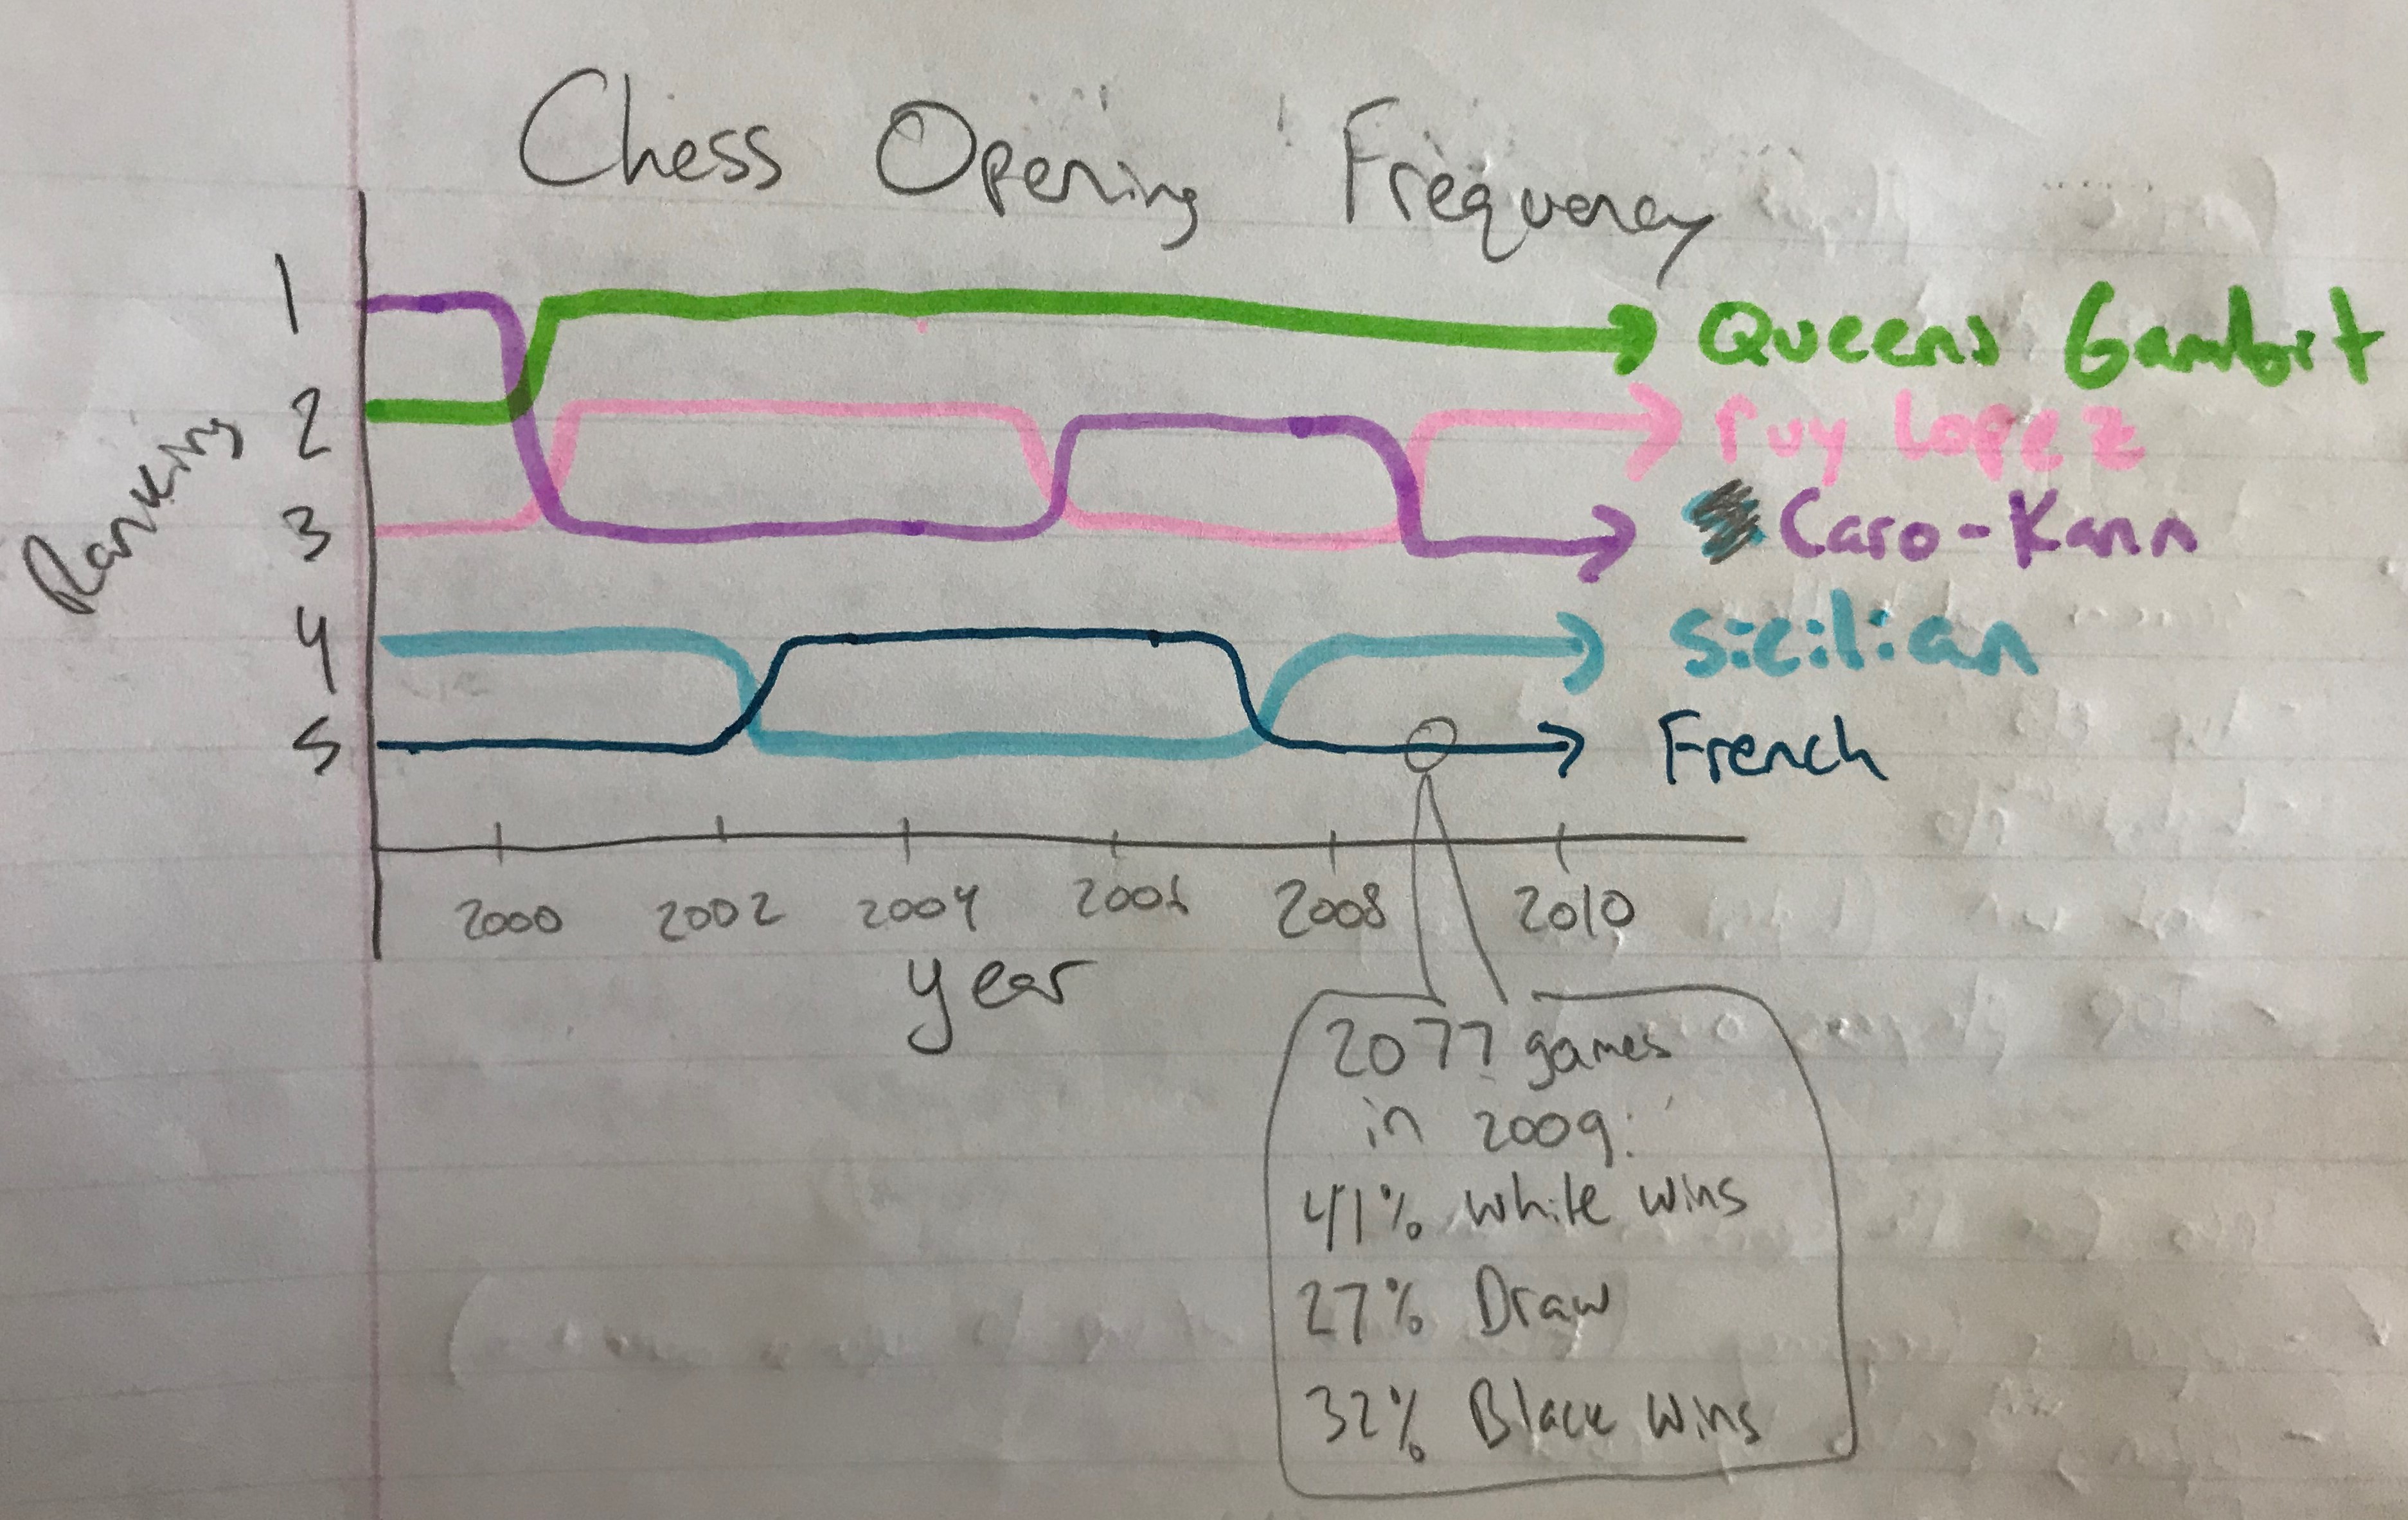 Chess Opening Frequency
Ranking
1
2
3
4
5
Queens Gambit
ruy lopez
Caro-Kann
Sicilian
French
2000 2002 2004 2006 2008 2010
year
2077 games
in 2009:
41% white wins
27% Draw
32% Black wins